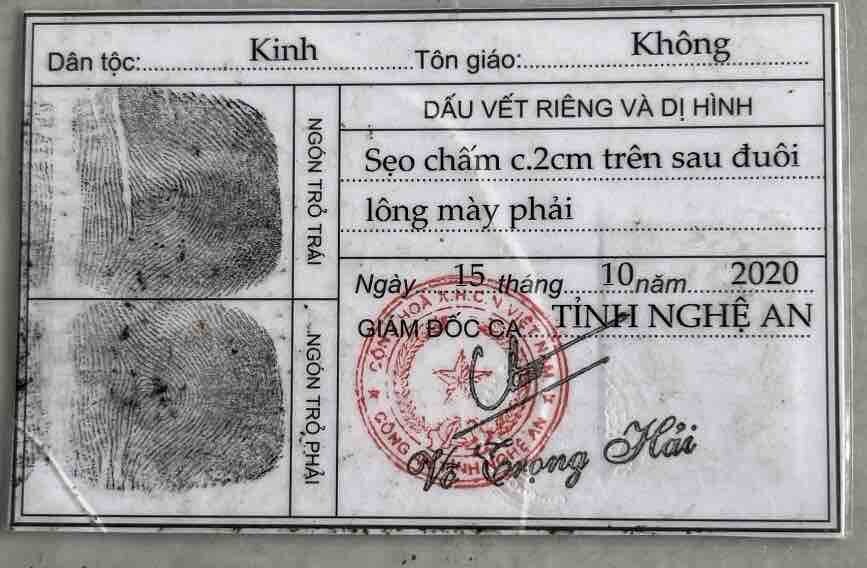 Dân tộc: Kinh Tôn giáo: Không
NGÓN TRỎ TRÁI
NGÓN TRỎ PHẢI
DẤU VẾT RIÊNG VÀ DỊ HÌNH
Sẹo chấm c.2cm trên sau đuôi
lông mày phải
Ngày 15 tháng 10 năm 2020
GIÁM ĐỐC CA TỈNH NGHỆ AN
CỘNG HOÀ X.H.C.N VIỆT NAM
CÔNG AN TỈNH NGHỆ AN
Võ Trọng Hải